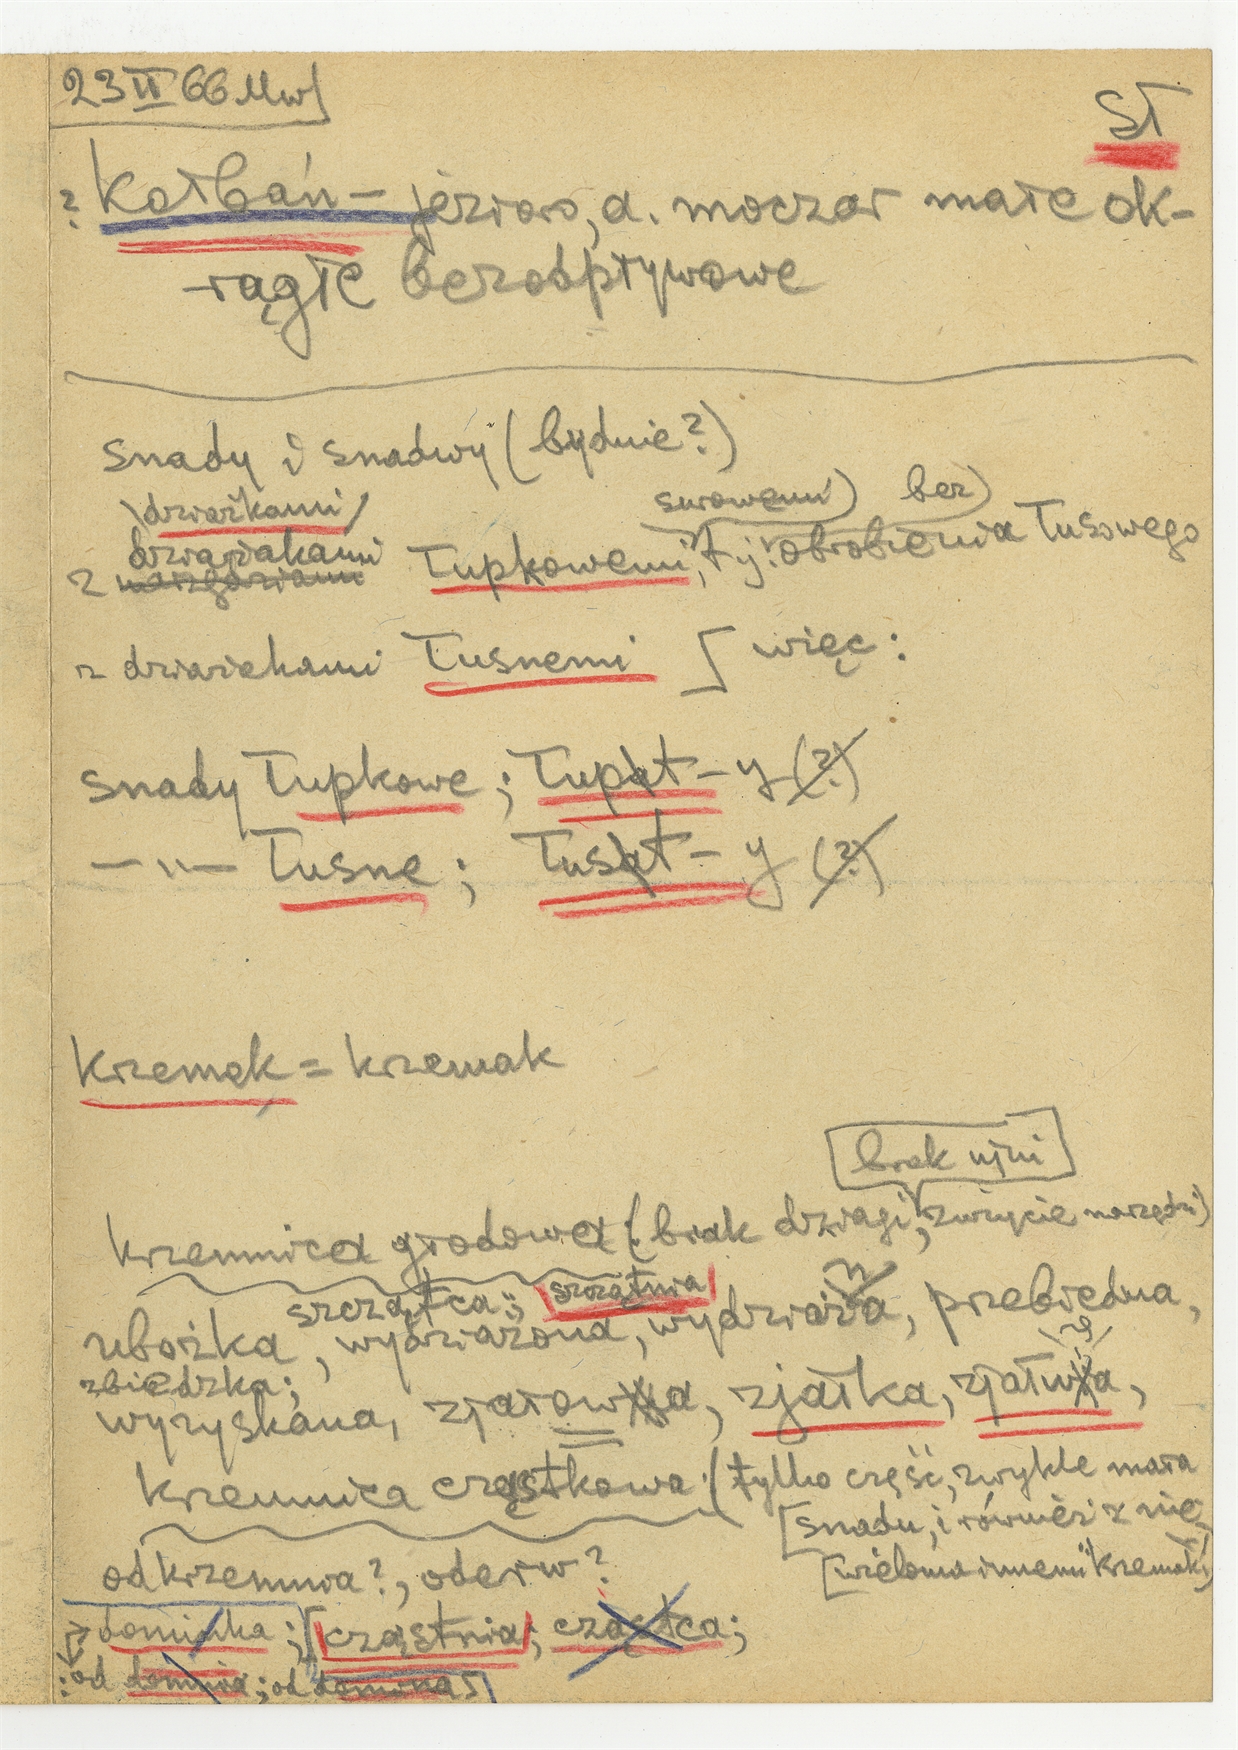 23 II 66 Mw
SŁ
? Kołbań – jezioro, a. moczar małe ok-
rągłe bezodpływowe
Snady i snadwy (bydnie?)
dziażkami surowemi) bez)
dziajakami
z narzędziami łupkowemi, t.j. obrobienia łusowego
z dziaziekami łusnemi [ więc:
snady łupkowe; łupkt – y (?)
— „ — łusne; łuskt – y (?)
krzemek = krzemak
brak ujni
krzemnica grodowa: (brak dziagi, zużycie narzędzi)
szczątca; szczątnia
ubożka, wydziażona, przebiedna,
zbiedzka;
wyzyskana, zjałka,
krzemnica cząstkowa: (tylko część, zwykle mała
[snadu, i również z nie-
[wieloma innemi krzemak)
odkrzemnia?, oderw?
domianka; [cząstnia; cząstca;
: od ; od